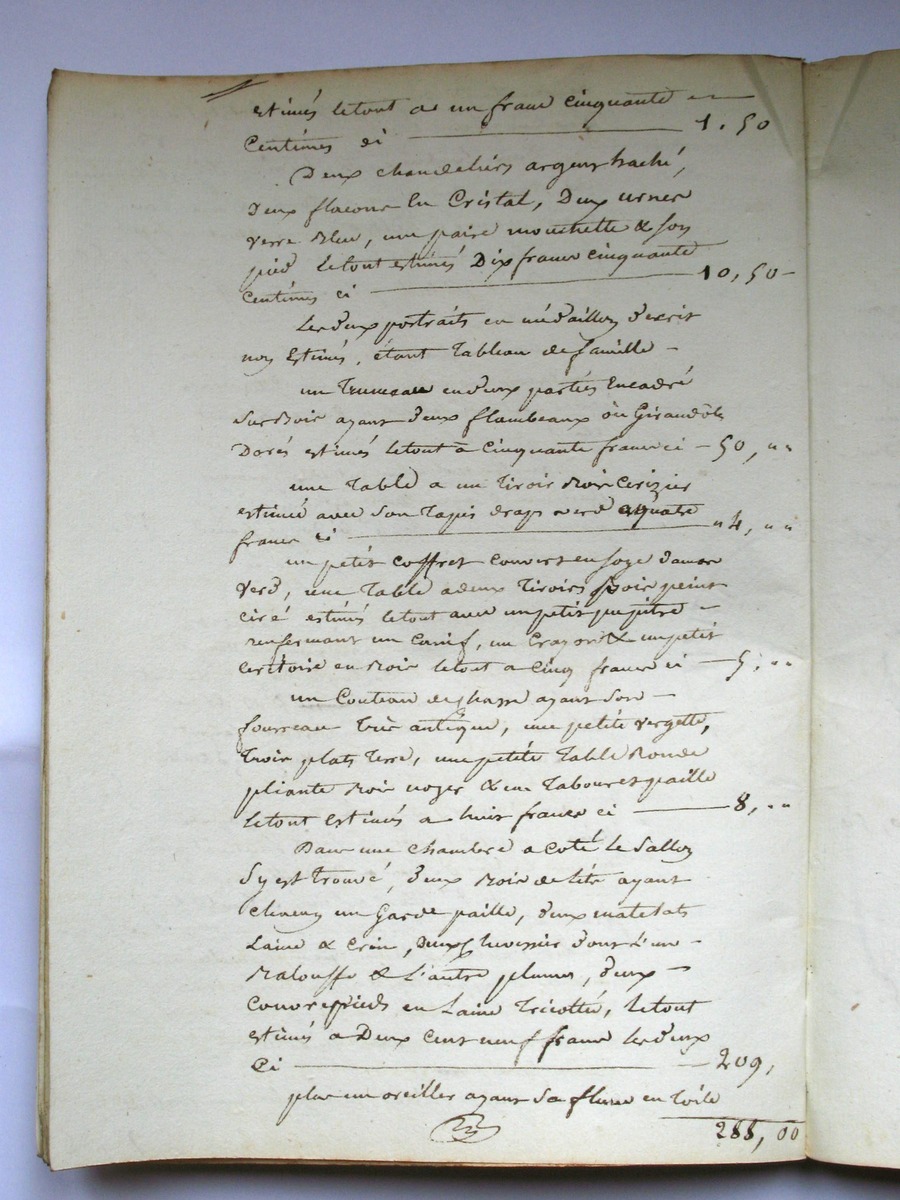 estimés letout a un franc cinquante
Centimes ci 1.50
Deux chandeliers argent haché,
Deux flacons en Cristal, Deux urnes
verre Bleu, une paire mouchette & son
pied letout estimés Dix francs cinquante
Centimes ci 10,50
Les deux portraits en médaillon
non Estimés, étant Tableau de famille
un Trumeau en deux parties Encadré
Sur Bois ayant deux flambeaux ou Girandoles
Dorés estimés letout à Cinquante francs ci 50, ""
une Table a un Tiroir Bois Cerizier
estimée avec son Tapis drap verd a quatre
francs ci "4, ""
un petit coffret couvert en soye damas
Verd, une Table a deux Tiroirs Bois peint
ciré estimés letout avec un petit pupitre
renfermant un Canif, un Crayon & un petit
Ecritoire en Bois letout a Cinq francs ci 5, ""
un Couteau de chasse ayant son
fourreau très antique, une petite vergette,
trois plats Terre, une petite Table Ronde
pliante Bois noyer & un Tabouret paille
letout estimés a huit francs ci 8, ""
Dans une chambre a coté le Sallon
S'y est trouvé, deux Bois de lits ayant
chacun un Garde paille, deux matelats
Laine & Crin, Deux dont l'un
Balouffe & L'autre plumes, deux
Couvrepieds en Laine Tricottée, letout
estimés a Deux Cent neuf francs les deux
Ci 209,
plus un oreiller ayant Sa fleurée en Toile
288,00